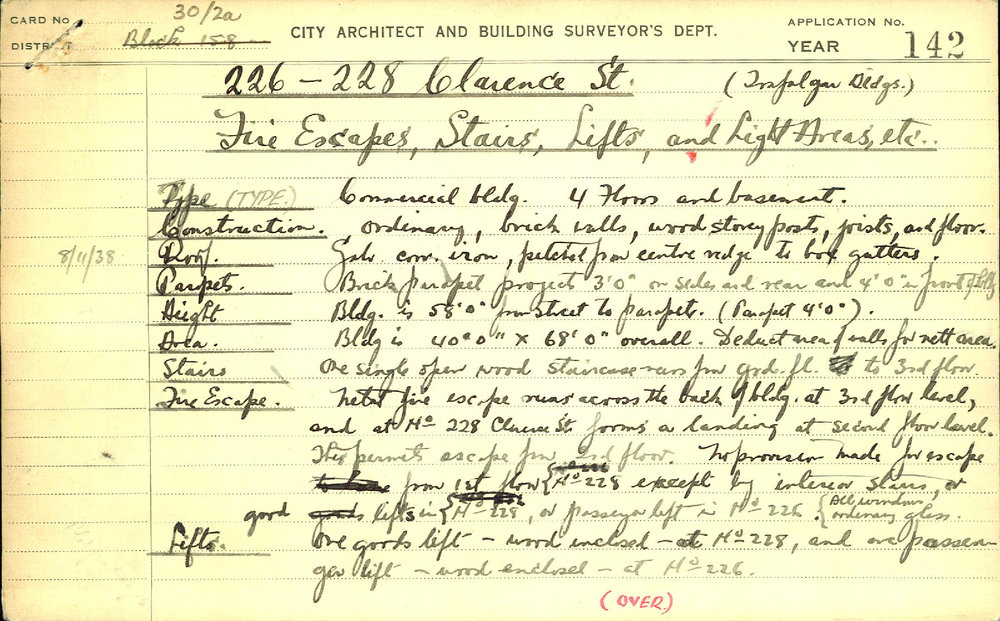 CARD No. 30/2a
DISTRICT Block 158
CITY ARCHITECT AND BUILDING SURVEYOR'S DEPT.
APPLICATION No.
YEAR 142
226 – 228 Clarence St. (Trafalgar Bldgs.)
Fire Escapes, Stairs, Lifts, and Light Areas, etc.
Type (TYPE.) Commercial bldg. 4 Floors and basement.
Construction. ordinary, brick walls, wood storey posts, joists, and floor.
8/11/38 Roof. Galv. corr. iron, pitched from centre ridge to box gutters.
Parapets. Brick parapet project 3'0" on sides and rear and 4'0" in front of bldg
Height Bldg. is 58'0" from street to parapets. (Parapet 4'0").
Area. Bldg is 40'0" x 68'0" overall. Deduct area of walls for nett area.
Stairs One single open wood staircase runs from grd. fl. to 3rd floor.
Fire Escape. Metal fire escape runs across the back of bldg. at 3rd floor level,
and at No 228 Clarence St. forms a landing at second floor level.
This permits escape from 2nd floor. No provision made for escape
from 1st floor { No 228 except by interior stairs, or
good lifts in { No 228, or passenger lift in No 226. { All windows ordinary glass.
Lifts. One goods lift – wood inclosed – at No 228, and one passen-
ger lift – wood enclosed – at No 226.
(OVER)